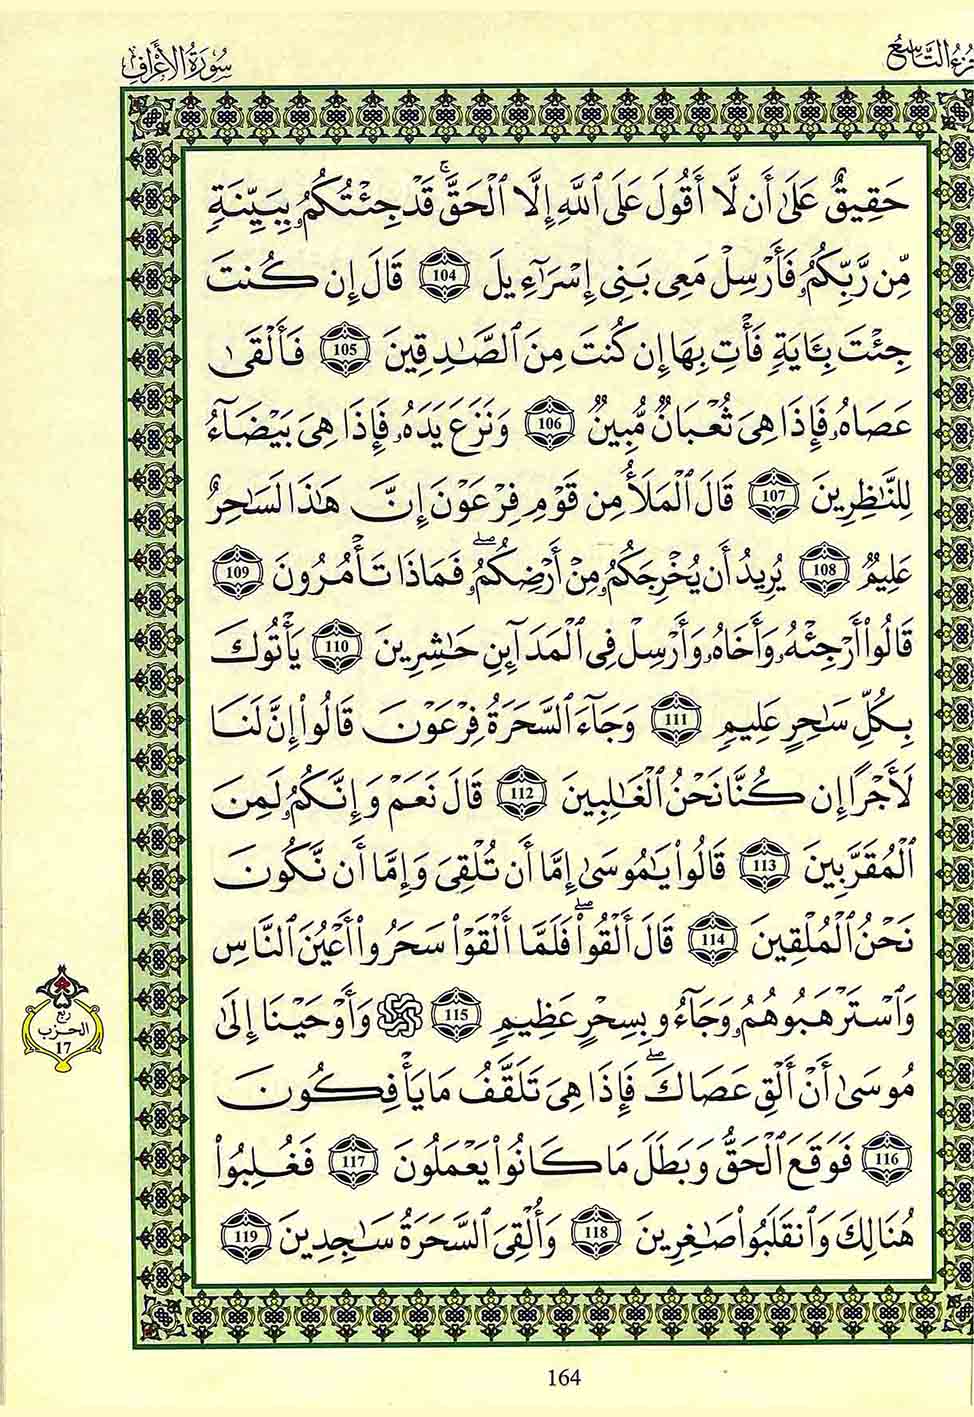 الجزء التاسع
سورة الأعراف
حَقِيقٌ عَلَىٰ أَن لَّا أَقُولَ عَلَى ٱللَّهِ إِلَّا ٱلْحَقَّ ۚ قَدْ جِئْتُكُمُۥ بِبَيِّنَةٍ
مِّن رَّبِّكُمُۥ فَأَرْسِلْ مَعِى بَنِى إِسْرَآءِيلَ 104 قَالَ إِن كُنتَ
جِئْتَ بِـَٔايَةٍ فَأْتِ بِهَا إِن كُنتَ مِنَ ٱلصَّٰدِقِينَ 105 فَأَلْقَىٰ
عَصَاهُۥ فَإِذَا هِىَ ثُعْبَانٌ مُّبِينٌ 106 وَنَزَعَ يَدَهُۥ فَإِذَا هِىَ بَيْضَآءُ
لِلنَّٰظِرِينَ 107 قَالَ ٱلْمَلَأُ مِن قَوْمِ فِرْعَوْنَ إِنَّ هَٰذَا لَسَٰحِرٌ
عَلِيمٌ 108 يُرِيدُ أَن يُخْرِجَكُمُۥ مِنْ أَرْضِكُمُۥ ۖ فَمَاذَا تَأْمُرُونَ 109
قَالُوا۟ أَرْجِئْهُۥ وَأَخَاهُۥ وَأَرْسِلْ فِى ٱلْمَدَآئِنِ حَٰشِرِينَ 110 يَأْتُوكَ
بِكُلِّ سَٰحِرٍ عَلِيمٍ 111 وَجَآءَ ٱلسَّحَرَةُ فِرْعَوْنَ قَالُوا۟ إِنَّ لَنَا
لَأَجْرًا إِن كُنَّا نَحْنُ ٱلْغَٰلِبِينَ 112 قَالَ نَعَمْ وَإِنَّكُمُۥ لَمِنَ
ٱلْمُقَرَّبِينَ 113 قَالُوا۟ يَٰمُوسَىٰ إِمَّا أَن تُلْقِىَ وَإِمَّا أَن نَّكُونَ
نَحْنُ ٱلْمُلْقِينَ 114 قَالَ أَلْقُوا۟ ۖ فَلَمَّا أَلْقَوْا۟ سَحَرُوا۟ أَعْيُنَ ٱلنَّاسِ
وَٱسْتَرْهَبُوهُمُۥ وَجَآءُو بِسِحْرٍ عَظِيمٍ 115 ۞ وَأَوْحَيْنَا إِلَىٰ
مُوسَىٰ أَنْ أَلْقِ عَصَاكَ ۖ فَإِذَا هِىَ تَلَقَّفُ مَا يَأْفِكُونَ
116 فَوَقَعَ ٱلْحَقُّ وَبَطَلَ مَا كَانُوا۟ يَعْمَلُونَ 117 فَغُلِبُوا۟
هُنَالِكَ وَٱنقَلَبُوا۟ صَٰغِرِينَ 118 وَأُلْقِىَ ٱلسَّحَرَةُ سَٰجِدِينَ 119
ربع
الحزب
17
164